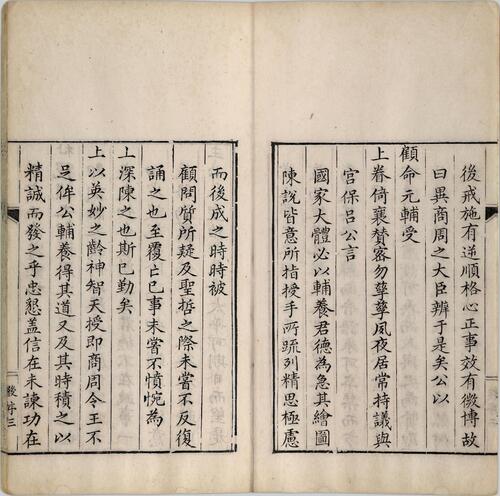 後戒施有逆順格心正事效有微博故
曰異商周之大臣辨于是矣公以
顧命元輔受
上眷倚襄贊密勿孳孳夙夜居常持議與
宮保呂公言
國家大體必以輔養君德為急其繪圖
陳說皆意所指授手所疏列精思極慮
而後成之時時被
顧問質所疑及聖哲之際未嘗不反復
誦之也至覆亡已事未嘗不憤惋為
上深陳之也斯已勤矣
上以英妙之齡神智天授即商周令王不
足侔公輔養得其道又及其時積之以
精誠而發之乎忠懇盖信在未諫功在
後序三